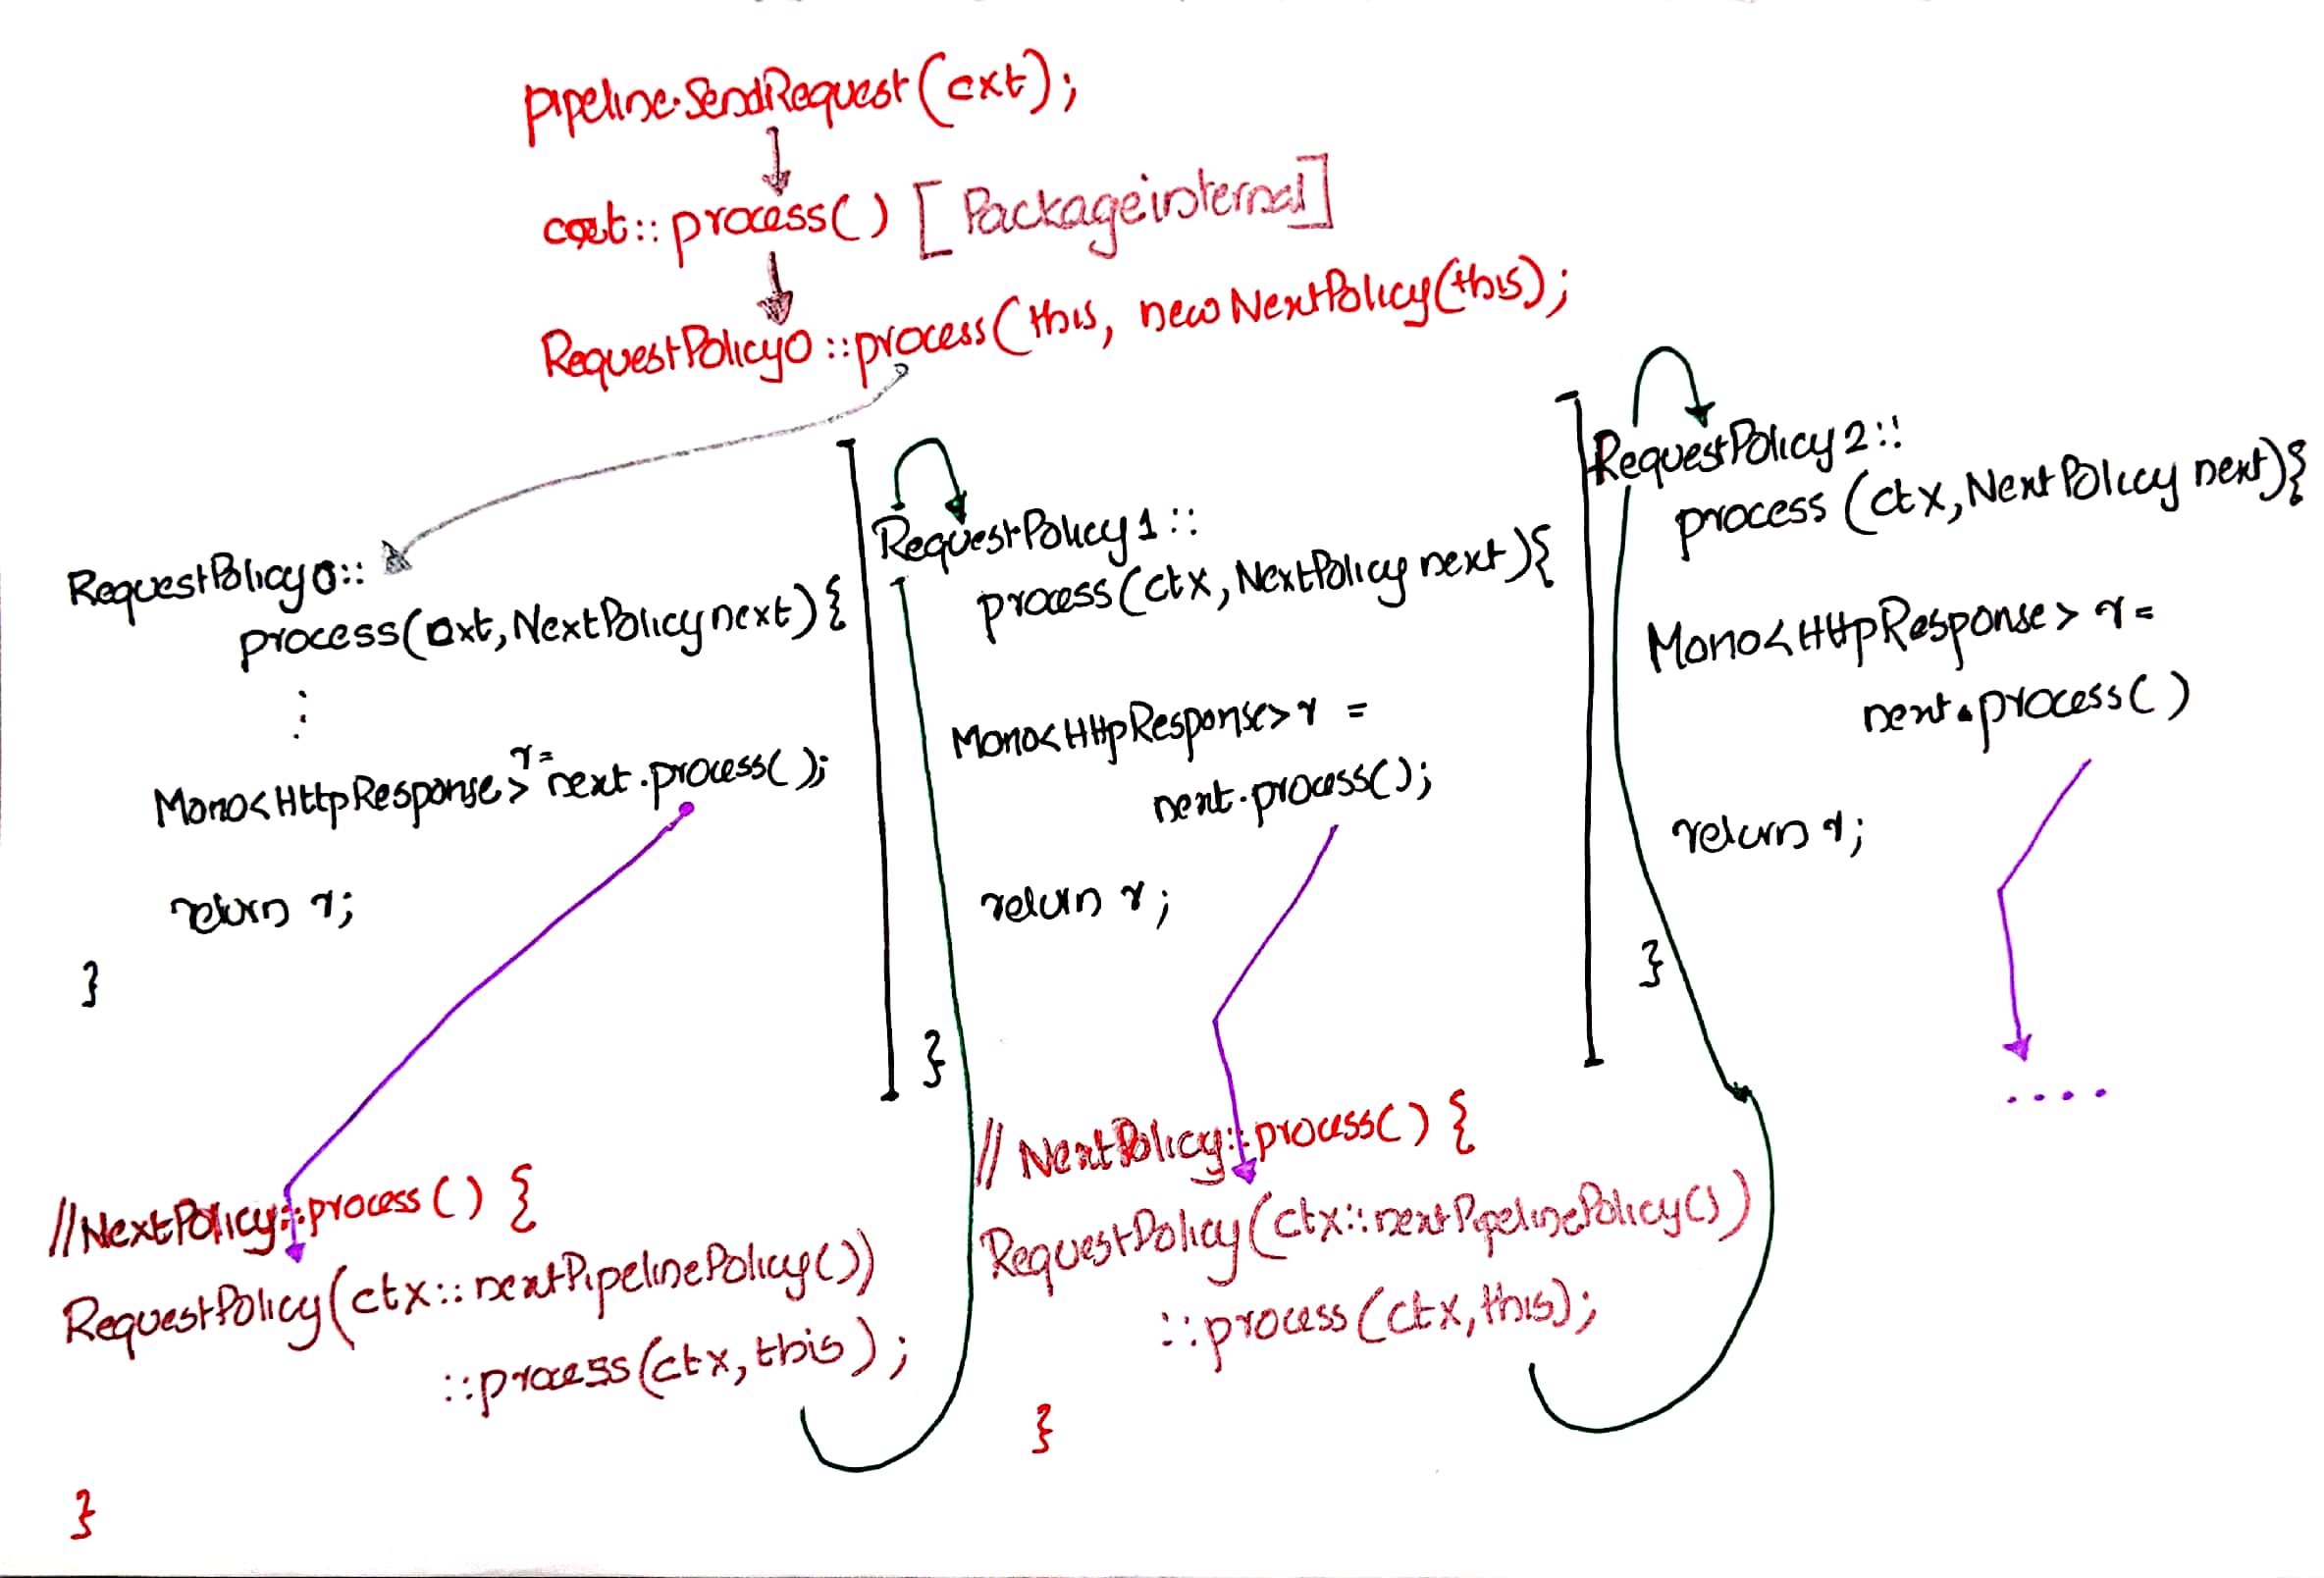 pipeline.SendRequest(cxt);
cxt::process() [Packageinternal]
RequestPolicy0::process(this, new NextPolicy(this);
RequestPolicy0::
process(cxt, NextPolicy next){
:
Mono<HttpResponse> r= next.process();
return r;
}
//NextPolicy::process() {
RequestPolicy(ctx::nextPipelinePolicy())
::process(ctx, this);
}
RequestPolicy1::
process(ctx, NextPolicy next){
Mono<HttpResponse> r =
next.process();
return r;
}
// NextPolicy::process() {
RequestPolicy(ctx::nextPipelinePolicy())
::process(ctx, this);
}
RequestPolicy2::
process(ctx, NextPolicy next){
Mono<HttpResponse> r =
next.process()
return r;
}
....